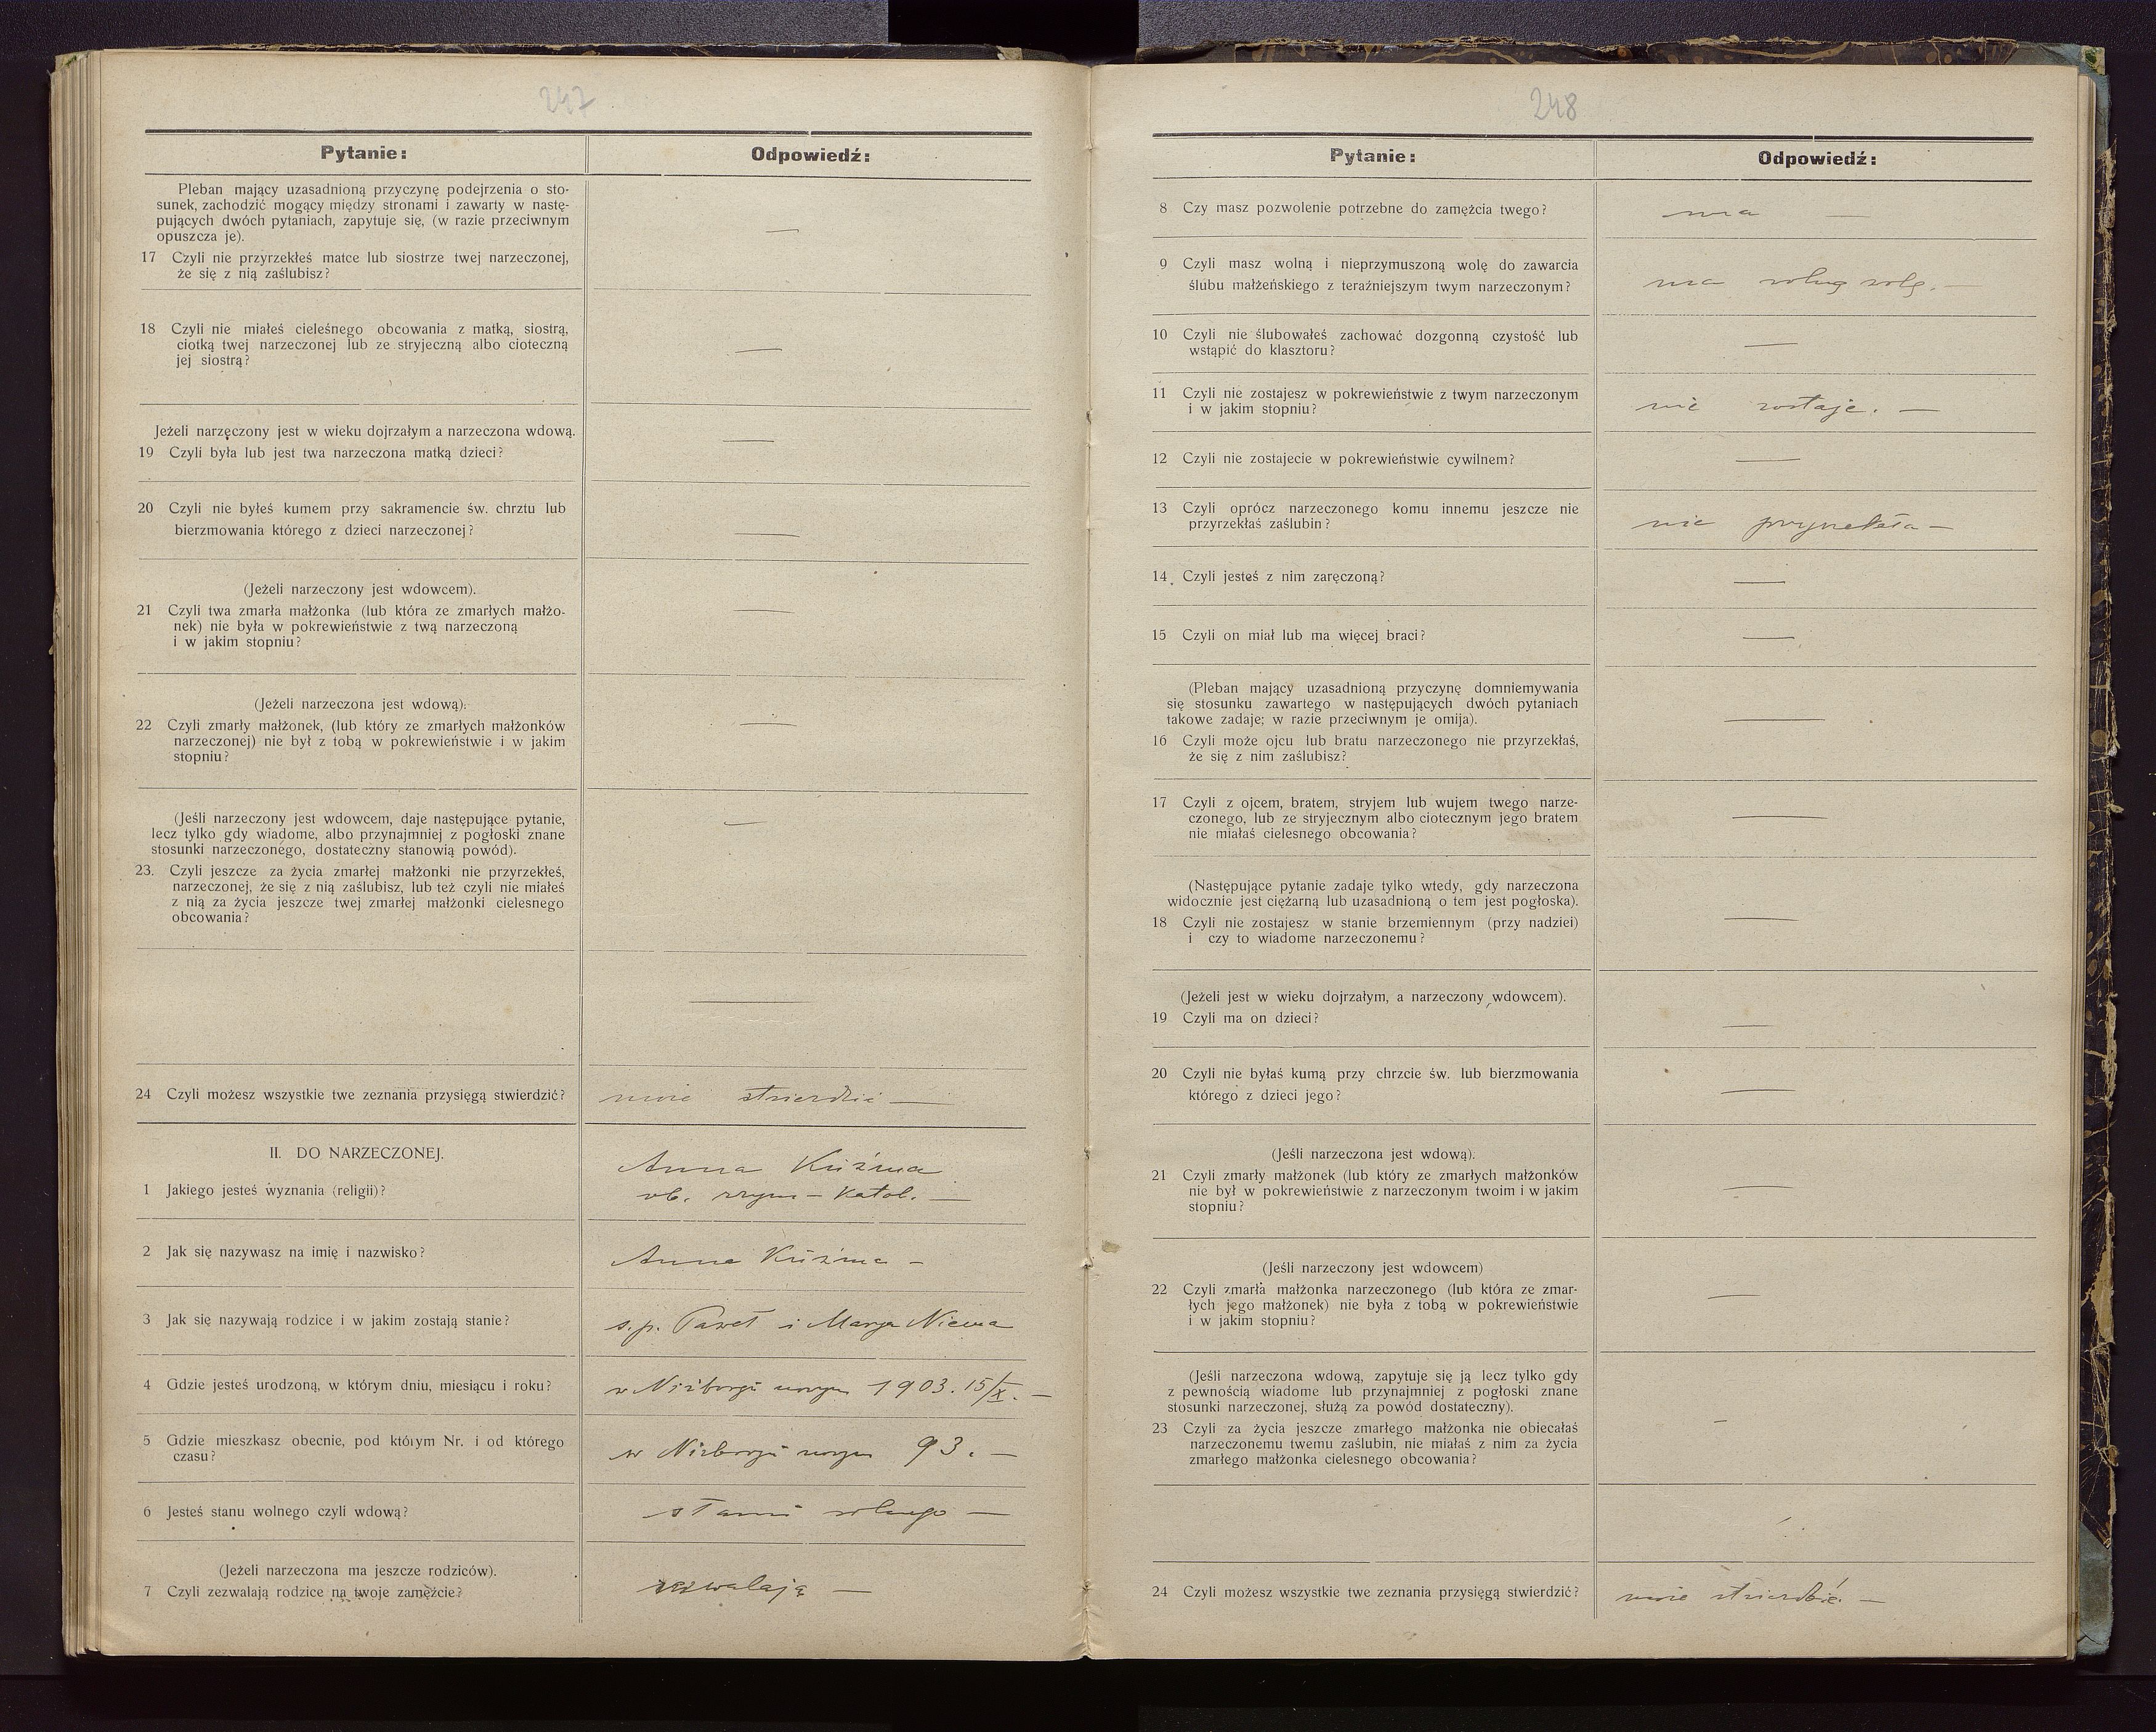 247
Pytanie:
Odpowiedź:
Pleban mający uzasadnioną przyczynę podejrzenia o sto-
sunek, zachodzić mogący między stronami i zawarty w nastę-
pujących dwóch pytaniach, zapytuje się, (w razie przeciwnym
opuszcza je).
—
17 Czyli nie przyrzekłeś matce lub siostrze twej narzeczonej,
że się z nią zaślubisz?
18 Czyli nie miałeś cieleśnego obcowania z matką, siostrą,
ciotką twej narzeczonej lub ze stryjeczną albo cioteczną
jej siostrą?
—
Jeżeli narzęczony jest w wieku dojrzałym a narzeczona wdową.
19 Czyli była lub jest twa narzeczona matką dzieci?
—
20 Czyli nie byłeś kumem przy sakramencie św. chrztu lub
bierzmowania którego z dzieci narzeczonej?
—
(Jeżeli narzeczony jest wdowcem).
21 Czyli twa zmarła małżonka (lub która ze zmarłych małżo-
nek) nie była w pokrewieństwie z twą narzeczoną
i w jakim stopniu?
—
(Jeżeli narzeczona jest wdową).
22 Czyli zmarły małżonek, (lub który ze zmarłych małżonków
narzeczonej) nie był z tobą w pokrewieństwie i w jakim
stopniu?
—
(Jeśli narzeczony jest wdowcem, daje następujące pytanie,
lecz tylko gdy wiadome, albo przynajmniej z pogłoski znane
stosunki narzeczonego, dostateczny stanowią powód).
—
23. Czyli jeszcze za życia zmarłej małżonki nie przyrzekłeś,
narzeczonej, że się z nią zaślubisz, lub też czyli nie miałeś
z nią za życia jeszcze twej zmarłej małżonki cielesnego
obcowania?
—
24 Czyli możesz wszystkie twe zeznania przysięgą stwierdzić?
może stwierdzić —
II. DO NARZECZONEJ.
Anna Kuźma
1 Jakiego jesteś wyznania (religii)?
ob. rzym – katol. —
2 Jak się nazywasz na imię i nazwisko?
Anna Kuźma –
3 Jak się nazywają rodzice i w jakim zostają stanie?
s.p. Paweł i Marya Niema
4 Gdzie jesteś urodzoną, w którym dniu, miesiącu i roku?
w Niżborgu nowym 1903. 15/X. —
5 Gdzie mieszkasz obecnie, pod którym Nr. i od którego
czasu?
w Niżborgu nowym 93. —
6 Jesteś stanu wolnego czyli wdową?
stanu wolnego —
(Jeżeli narzeczona ma jeszcze rodziców).
7 Czyli zezwalają rodzice na twoje zamężcie?
zezwalają —
248
Pytanie:
Odpowiedź:
8 Czy masz pozwolenie potrzebne do zamężcia twego?
ma —
9 Czyli masz wolną i nieprzymuszoną wolę do zawarcia
ślubu małżeńskiego z teraźniejszym twym narzeczonym?
ma wolną wolę. —
10 Czyli nie ślubowałeś zachować dozgonną czystość lub
wstąpić do klasztoru?
—
11 Czyli nie zostajesz w pokrewieństwie z twym narzeczonym
i w jakim stopniu?
nie zostaje. —
12 Czyli nie zostajecie w pokrewieństwie cywilnem?
—
13 Czyli oprócz narzeczonego komu innemu jeszcze nie
przyrzekłaś zaślubin?
nie przyrzekła —
14 Czyli jesteś z nim zaręczoną?
—
15 Czyli on miał lub ma więcej braci?
—
(Pleban mający uzasadnioną przyczynę domniemywania
się stosunku zawartego w następujących dwóch pytaniach
takowe zadaje; w razie przeciwnym je omija).
—
16 Czyli może ojcu lub bratu narzeczonego nie przyrzekłaś,
że się z nim zaślubisz?
17 Czyli z ojcem, bratem, stryjem lub wujem twego narze-
czonego, lub ze stryjecznym albo ciotecznym jego bratem
nie miałaś cielesnego obcowania?
—
(Następujące pytanie zadaje tylko wtedy, gdy narzeczona
widocznie jest ciężarną lub uzasadnioną o tem jest pogłoska).
18 Czyli nie zostajesz w stanie brzemiennym (przy nadziei)
i czy to wiadome narzeczonemu?
—
(Jeżeli jest w wieku dojrzałym, a narzeczony wdowcem).
19 Czyli ma on dzieci?
—
20 Czyli nie byłaś kumą przy chrzcie św. lub bierzmowania
którego z dzieci jego?
—
(Jeśli narzeczona jest wdową).
21 Czyli zmarły małżonek (lub który ze zmarłych małżonków
nie był w pokrewieństwie z narzeczonym twoim i w jakim
stopniu?
—
(Jeśli narzeczony jest wdowcem)
22 Czyli zmarła małżonka narzeczonego (lub która ze zmar-
łych jego małżonek) nie była z tobą w pokrewieństwie
i w jakim stopniu?
—
(Jeśli narzeczona wdową, zapytuje się ją lecz tylko gdy
z pewnością wiadome lub przynajmniej z pogłoski znane
stosunki narzeczonej, służą za powód dostateczny).
23 Czyli za życia jeszcze zmarłego małżonka nie obiecałaś
narzeczonemu twemu zaślubin, nie miałaś z nim za życia
zmarłego małżonka cielesnego obcowania?
–
24 Czyli możesz wszystkie twe zeznania przysięgą stwierdzić?
może stwierdzić. —